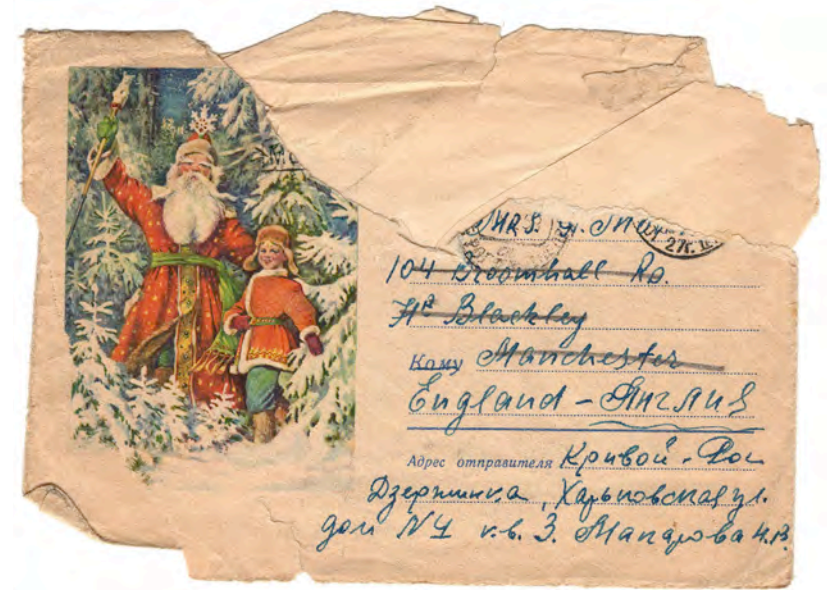 MRS.
104 Broomhall Rd.
Hr Blackley
Кому Manchester
England - Англия
Адрес отправителя Кривой - Рог
Дзержинка, Харьковская ул.
дом № 4 кв. 3. Макарова Н.В.